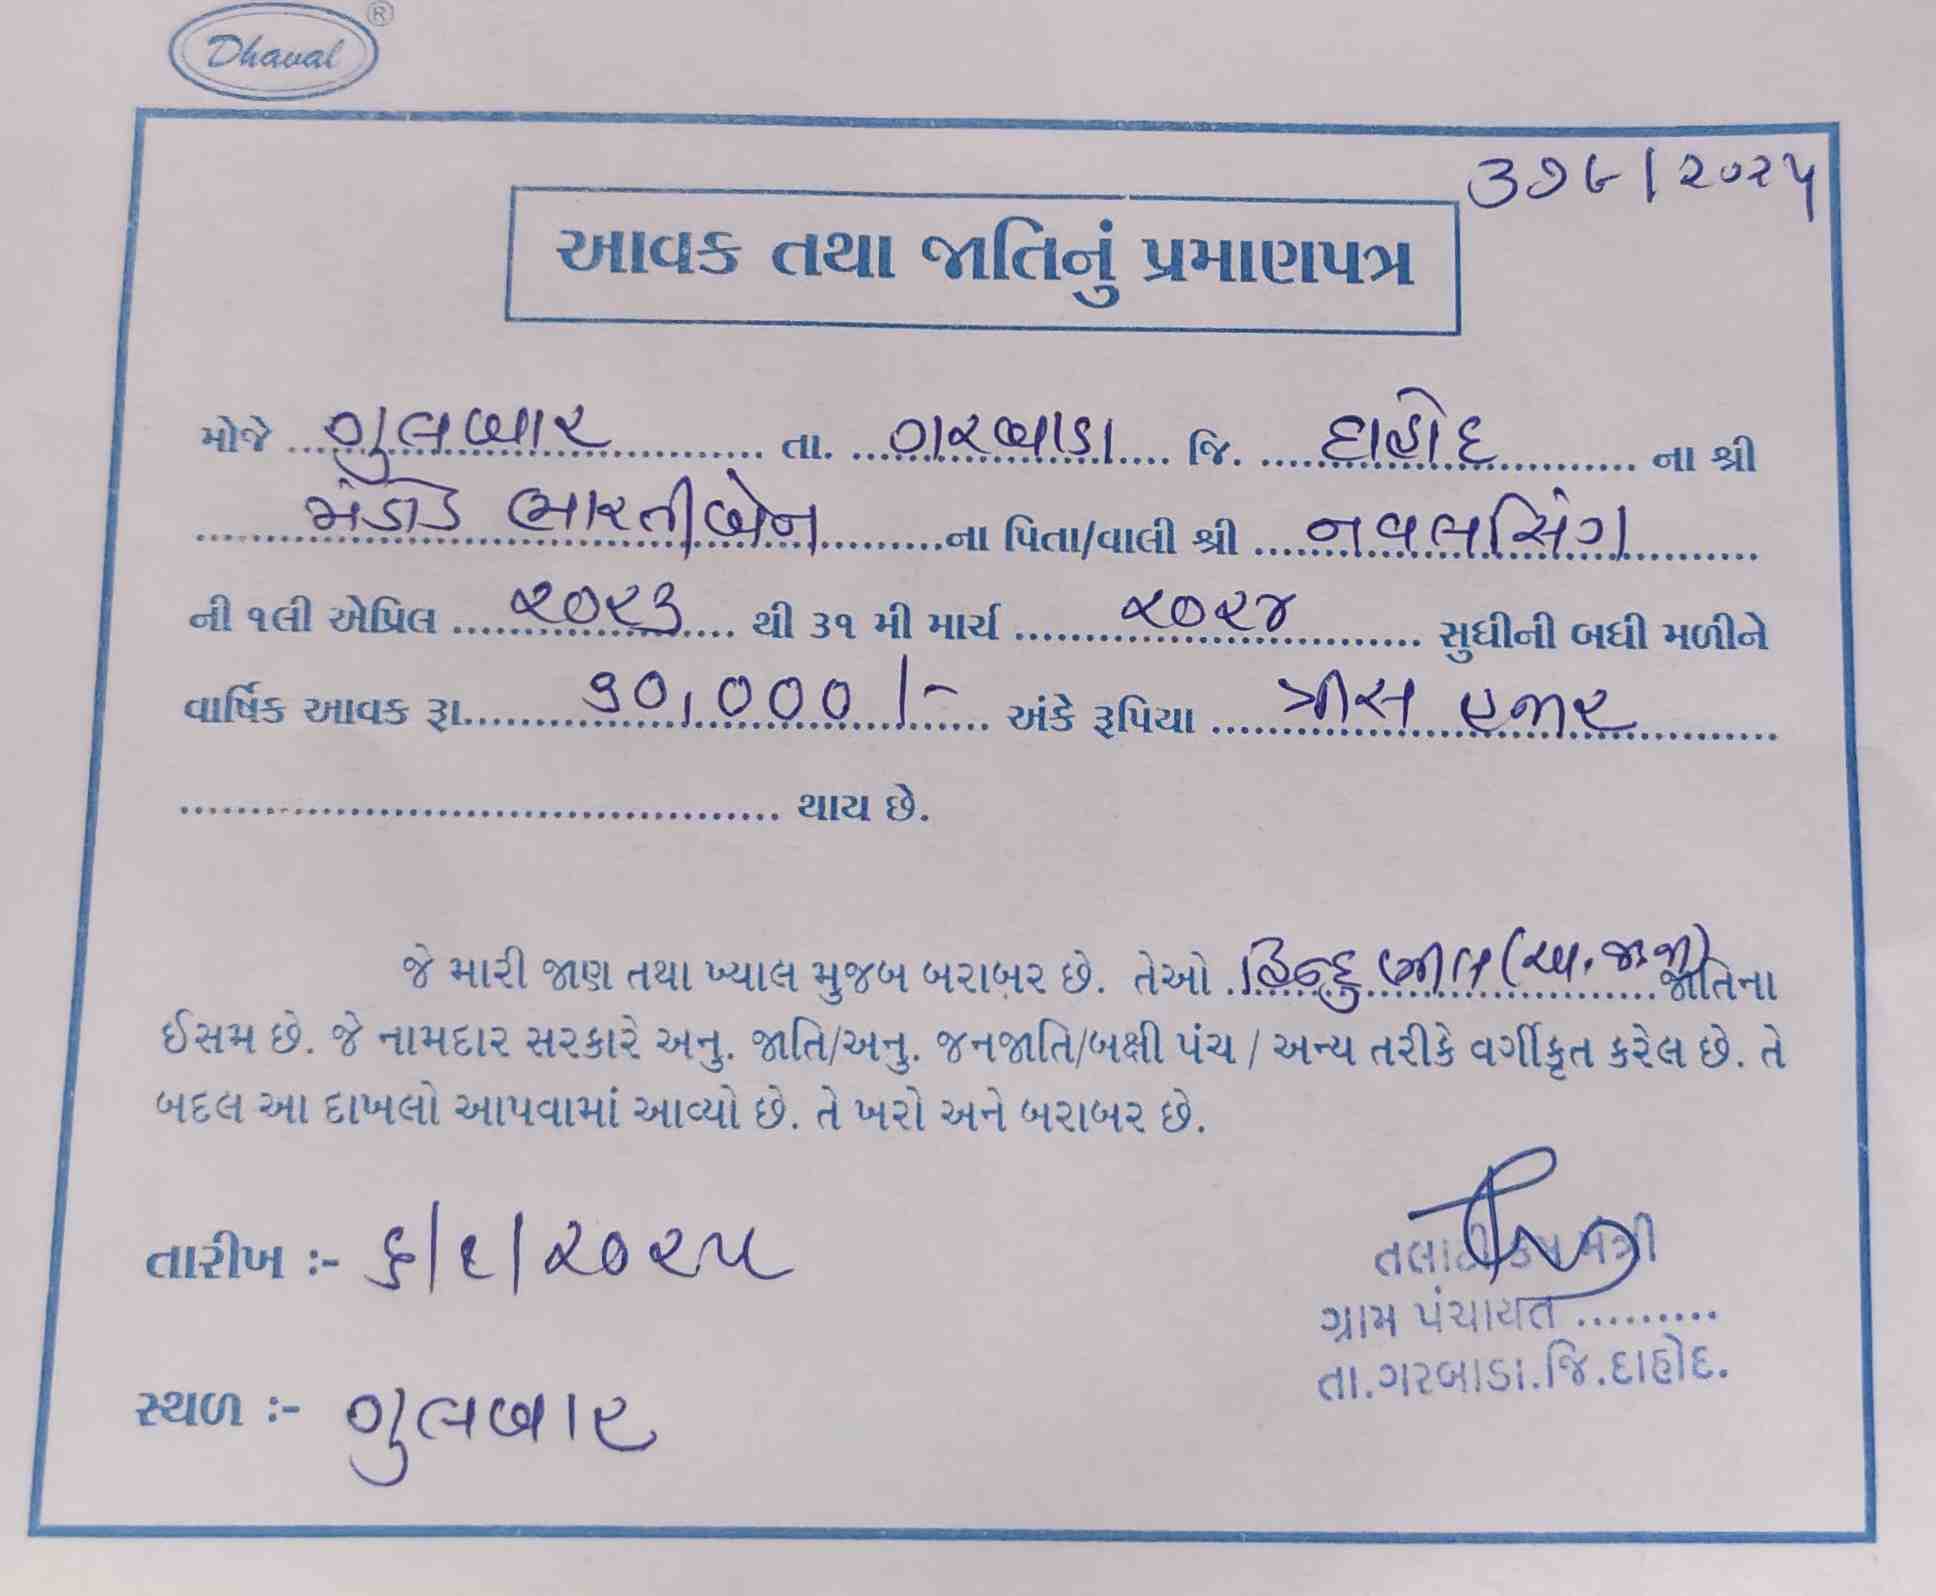 Dhaval ®
૩૭૯/૨૦૨૫
આવક તથા જાતિનું પ્રમાણપત્ર
મોજે ગુલબાર તા. ગરબાડા જિ. દાહોદ ના શ્રી
મંડોડ ભારતીબેન ના પિતા/વાલી શ્રી નવલસિંગ
ની ૧લી એપ્રિલ ૨૦૨૩ થી ૩૧ મી માર્ચ ૨૦૨૪ સુધીની બધી મળીને
વાર્ષિક આવક રૂા. ૩૦,૦૦૦/- અંકે રૂપિયા ત્રીસ હજાર
થાય છે.
જે મારી જાણ તથા ખ્યાલ મુજબ બરાબર છે. તેઓ હિન્દુ ભીલ (અ.જ.જા) જાતિના
ઈસમ છે. જે નામદાર સરકારે અનુ. જાતિ/અનુ. જનજાતિ/બક્ષી પંચ / અન્ય તરીકે વર્ગીકૃત કરેલ છે. તે
બદલ આ દાખલો આપવામાં આવ્યો છે. તે ખરો અને બરાબર છે.
તારીખ :- ૬/૧/૨૦૨૫
તલાટી કમ મંત્રી
ગ્રામ પંચાયત .........
તા.ગરબાડા.જિ.દાહોદ.
સ્થળ :- ગુલબાર